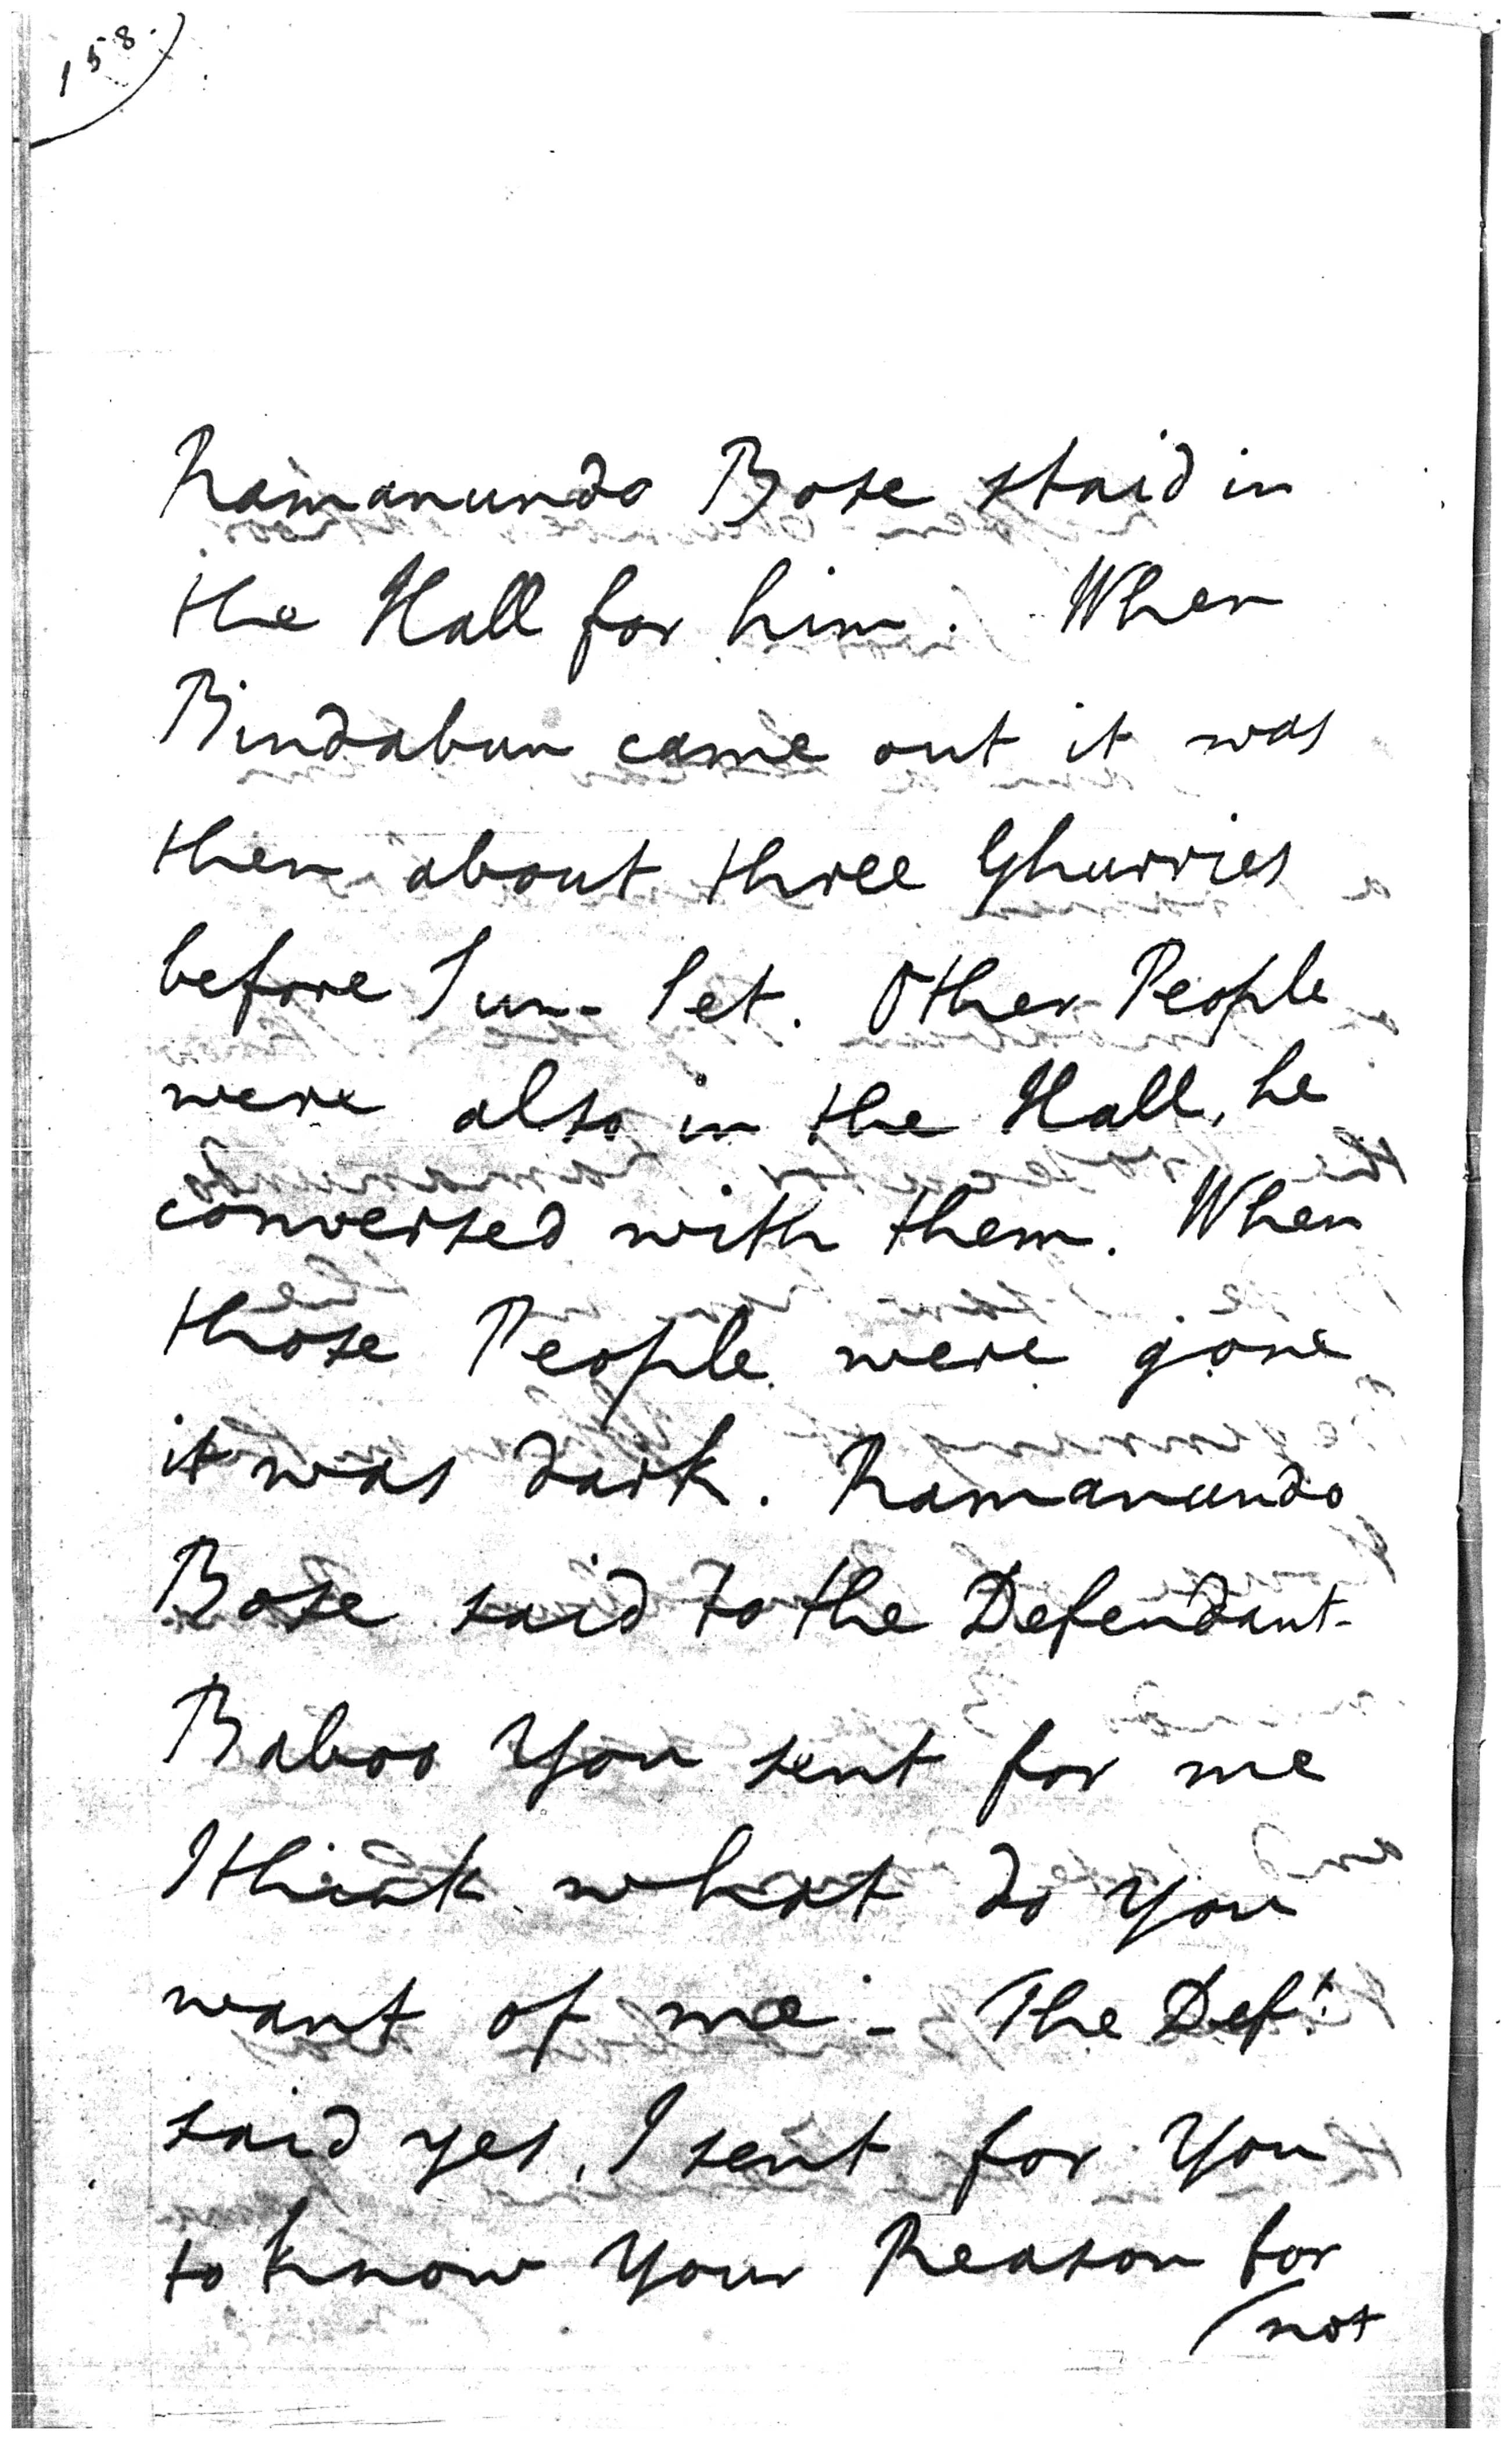 158.
Ramanundo Bose staid in
the Hall for him. When
Bindabun came out it was
then about three Ghurries
before Sun-Set. Other People
were also in the Hall, he
conversed with them. When
those People were gone
it was dark. Ramanundo
Bose said to the Defendant-
Baboo You sent for me
I think what do You
want of me - The Def.t
said yes, I sent for You
to know Your Reason for
not